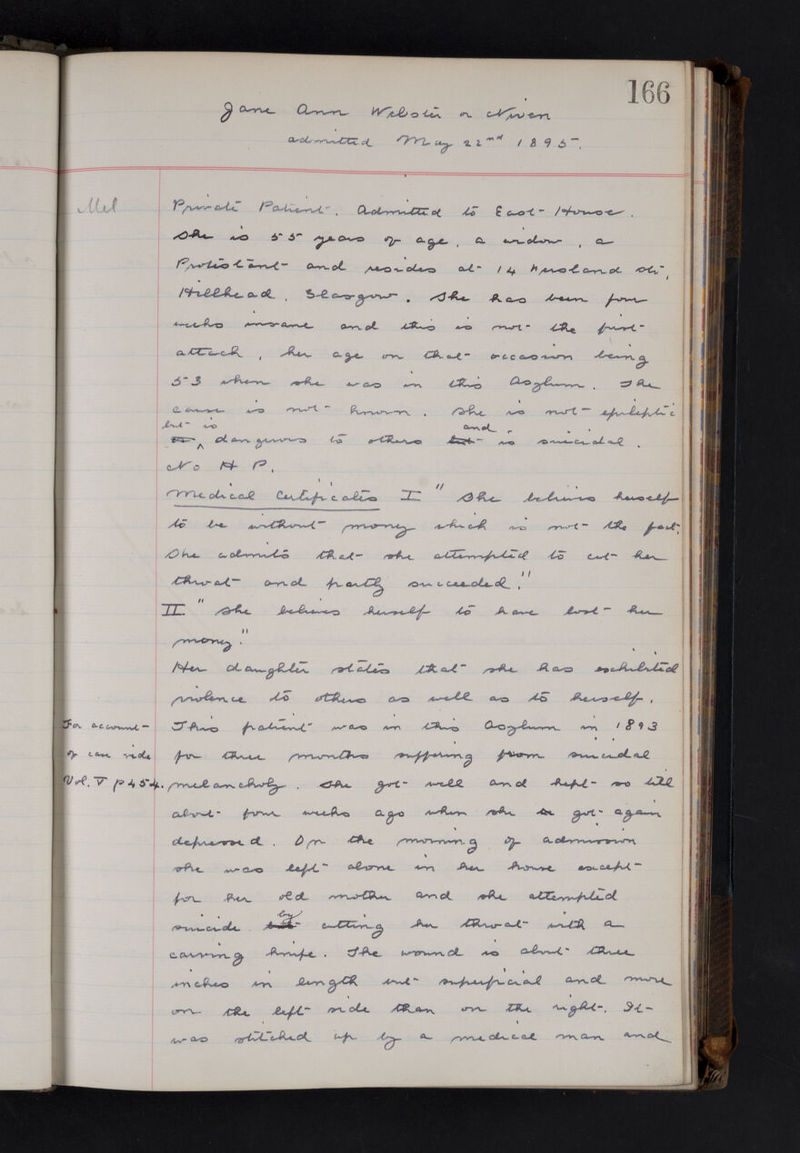 166
Jane Ann Webster or Niven
admitted May 22nd 1895.
Mel
Private Patient. Admitted to East-House.
She is 55 years of age, a widow, a
Protestant and resides at 14 Street,
Hillhead, Glasgow. She has been four
weeks insane and this is not the first
attack, her age on that occasion being
53 when she was in this Asylum. The
cause is not known. She is not epileptic
but is and
dangerous to others but is suicidal.
No H P.
Medical Certificates I " She believes herself
to be without money which is not the fact.
She admits that she attempted to cut her
throat and partly succeeded."
II. " She believes herself to have lost her
money."
Her daughter states that she has exhibited
violence to others as well as to herself.
For account This patient was in this Asylum in 1893
of case vide for three months suffering from suicidal
Vol. V p 454. melancholy. She got well and kept so till
about four weeks ago when she got again
depressed. On the morning of admission
she was left alone in her house except
for her old mother and she attempted
by
suicide but cutting her throat with a
carving knife. The wound is about three
inches in length but superficial and more
on the left side than on the right. It
was stitched up by a medical man and